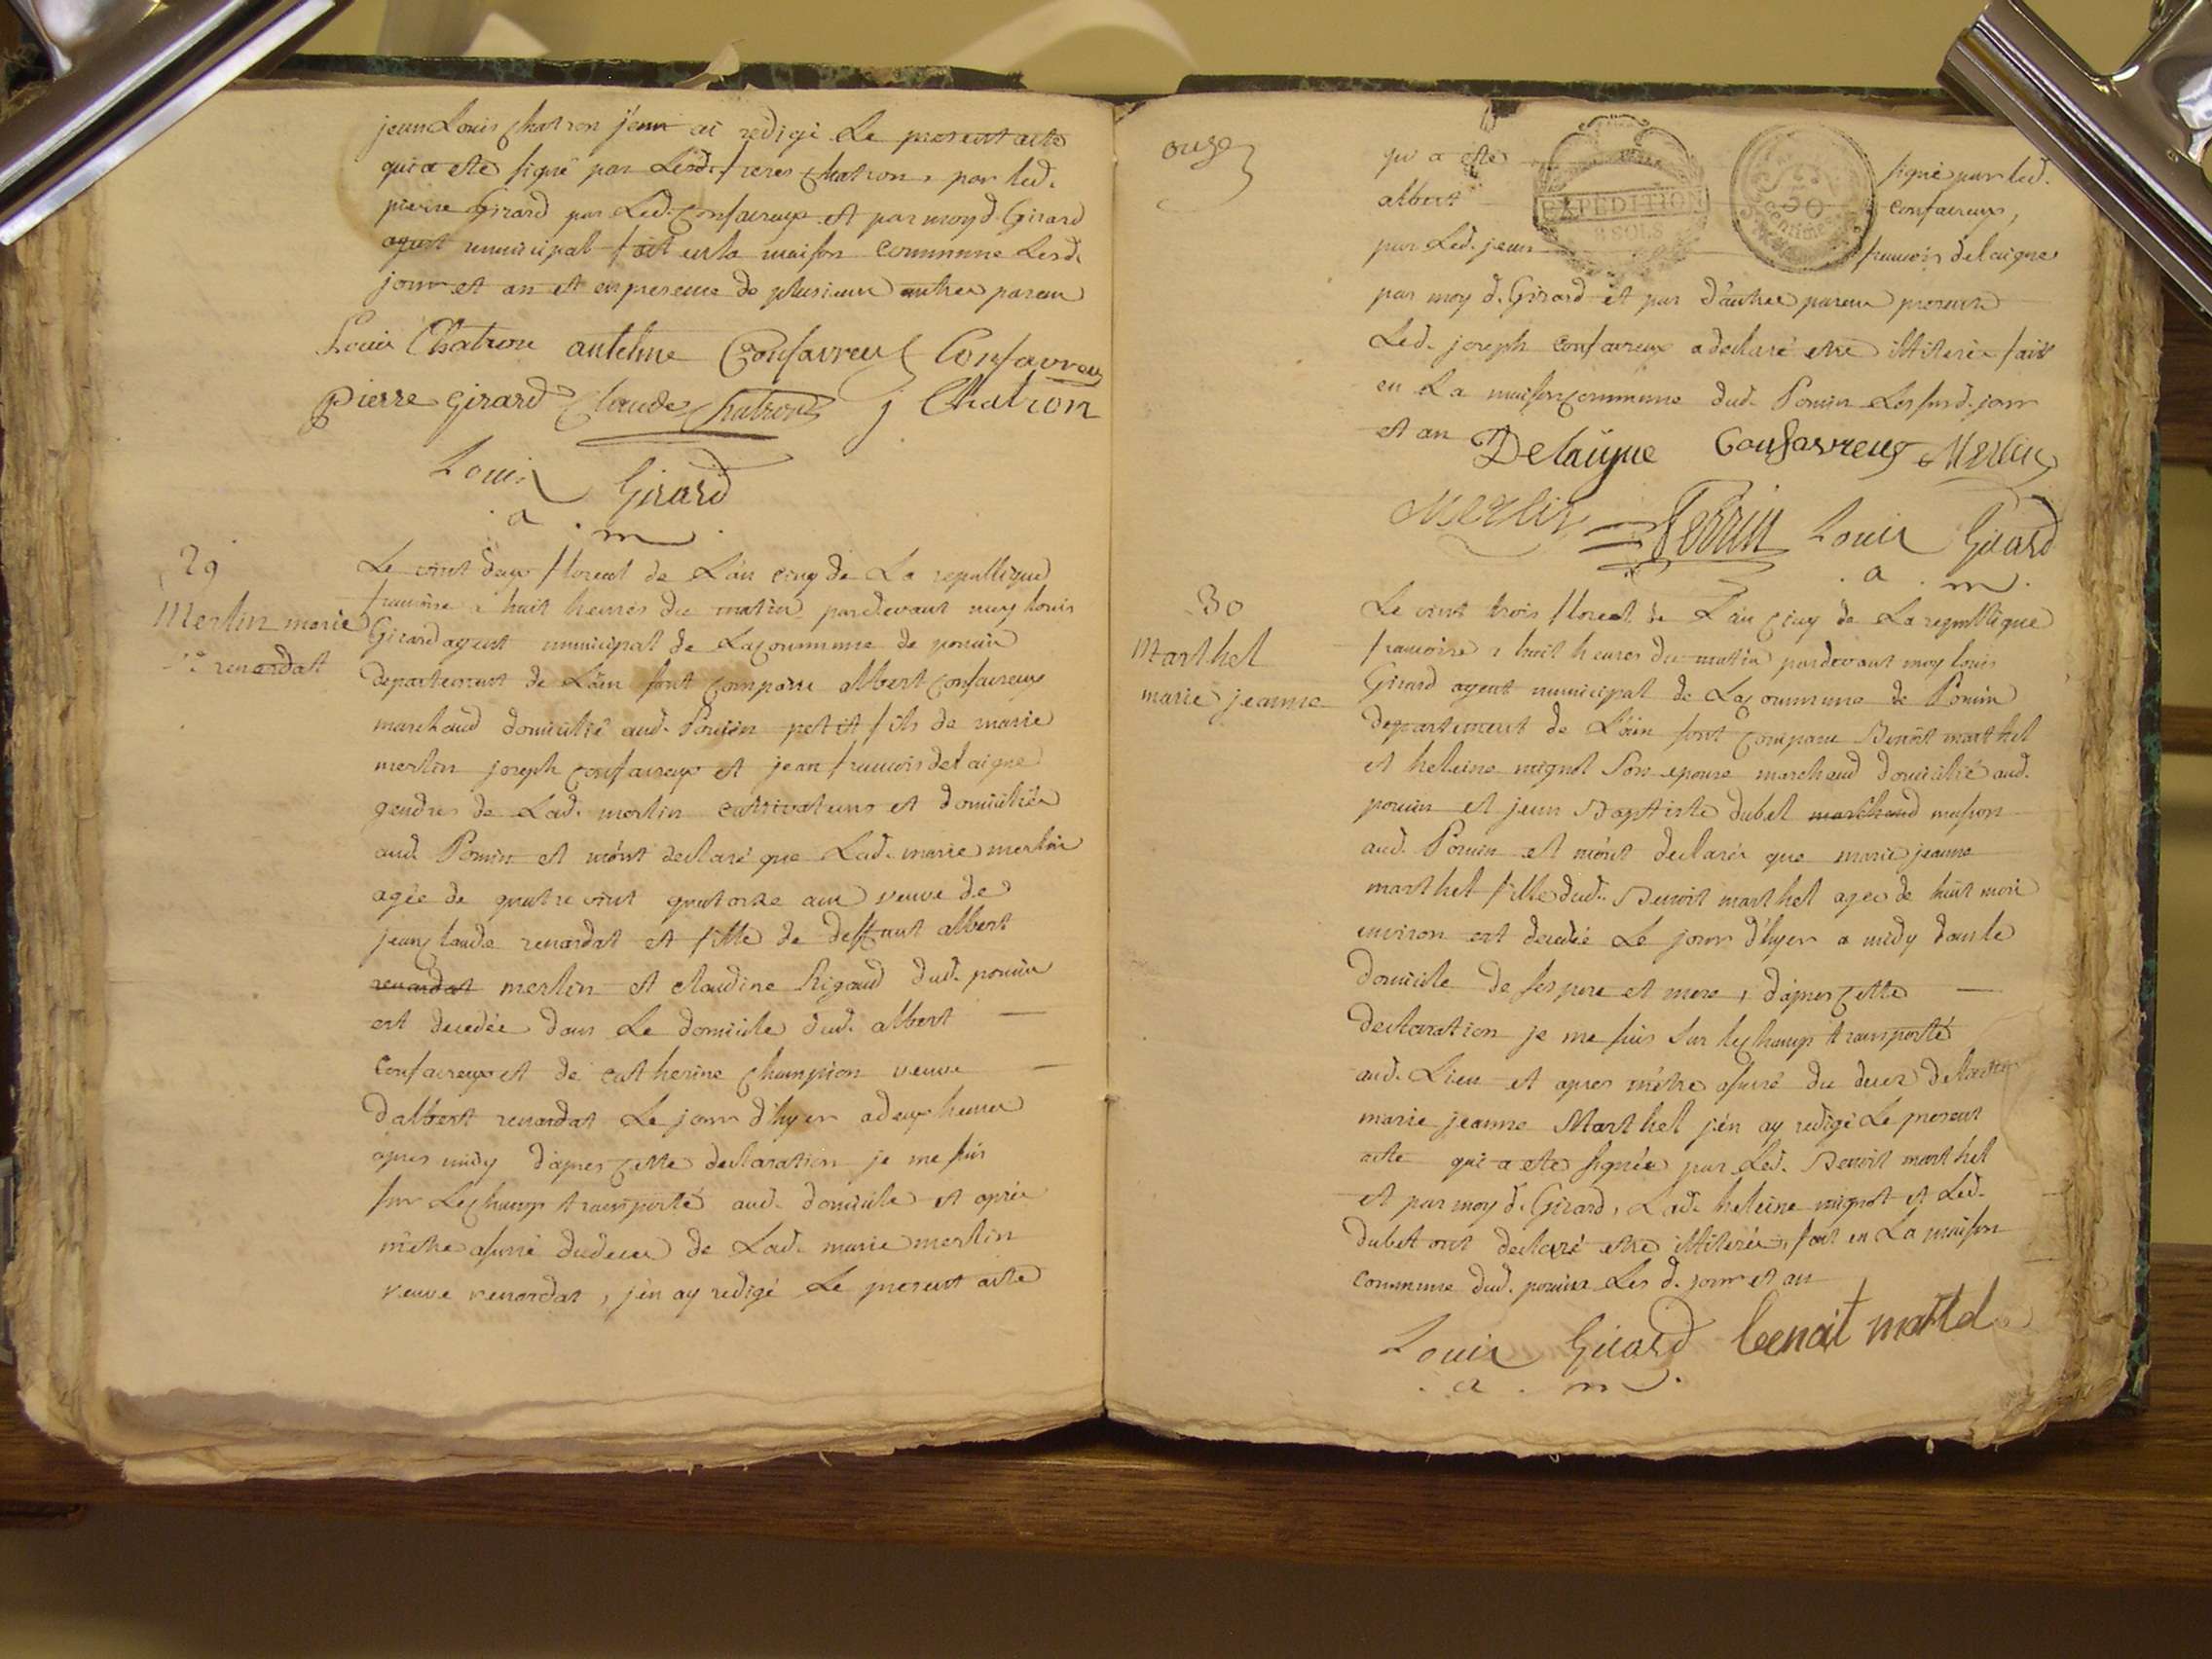 jean Louis chatron j'en ai redigé Le present acte
qui a ete signé par Lesd. freres chatron, par led.
pierre Girard par Led. confavreux et par moy d. Girard
agent municipal fait en la maison commune Lesd.
jour et an et en presence de plusieurs autres parens
Louis Chatron antelme Confavreux Confavreux
pierre girard Claude Chatron j Chatron
Louis Girard
a . m
29
Merlin marie
ve renardat
Le vint deux floreal de L'an cinq de La republique
francoise a huit heures du matin pardevant moy louis
Girard agent municipal de La commune de poncin
departement de L'ain sont comparu albert confavreux
marchand domicilié aud. Poncin petit fils de marie
merlin joseph confavreux et jean francois delaigne
gendres de Lad. merlin cultivateurs et domiciliés
aud. Poncin et m'ont declaré que Lad. marie merlin
agée de quatre vint quatorze ans veuve de
jean claude renardat et fille de deffunt albert
renardat merlin et claudine Rigaud dud. poncin
est decedée dans Le domicile dud. albert
confavreux et de catherine champion veuve
d'albert renardat Le jour d'hyer a deux heures
apres midy d'apres cette declaration je me suis
sur Le champ transporté aud. domicile et après
m'etre assuré du deces de Lad. marie merlin
veuve renardat, j'en ay redigé Le present acte
onze
qui a ete signé par led.
EXPEDITION
2 SOLS
50
centimes
albert confavreux,
par Led. jean francois delaigne
par moy d. Girard et par d'autres parens presents
Led. joseph confavreux a declaré etre illiteré fait
en La maison commune dud. Poncin Les susd. jour
et an Delaigue Confavreux Merlin
Merlin Perrin Louis Girard
a . m .
30
Marthel
marie jeanne
Le vint trois floreal de L'an cinq de La republique
francoise a huit heures du matin pardevant moy louis
Girard agent municipal de La commune de Poncin
departement de L'ain sont comparu Benoit marthel
et heleine mignot son epouse marchand domicilié aud.
poncin et jean Baptiste dubet marchand masson
aud. Poncin et m'ont declarés que marie jeanne
marthel fille dud. Benoit marthel agee de huit mois
environ est decedée Le jour d'hyer a midy dans le
domicile de ses pere et mere, d'apres cette
declaration je me suis sur le champ transporté
aud. Lieu et apres m'etre assuré du deces de ladite
marie jeanne Marthel j'en ay redigé Le present
acte qui a ete signée par Led. Benoit marthel
et par moy d. Girard, Lad. heleine mignot et Led.
dubet ont declaré etre illiterés, fait en La maison
commune dud. poncin Les d. jour et an
Louis Girard benait martel
. a . m .